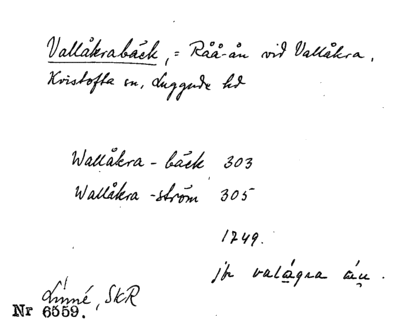 Vallåkrabäck, = Råå-ån vid Vallåkra,
Kvistofta sn, Luggude hd
Wallåkra - bäck 303
Wallåkra - ström 305
1749.
jfr valågra åu̯ .
Linné, SkR
Nr 6559.